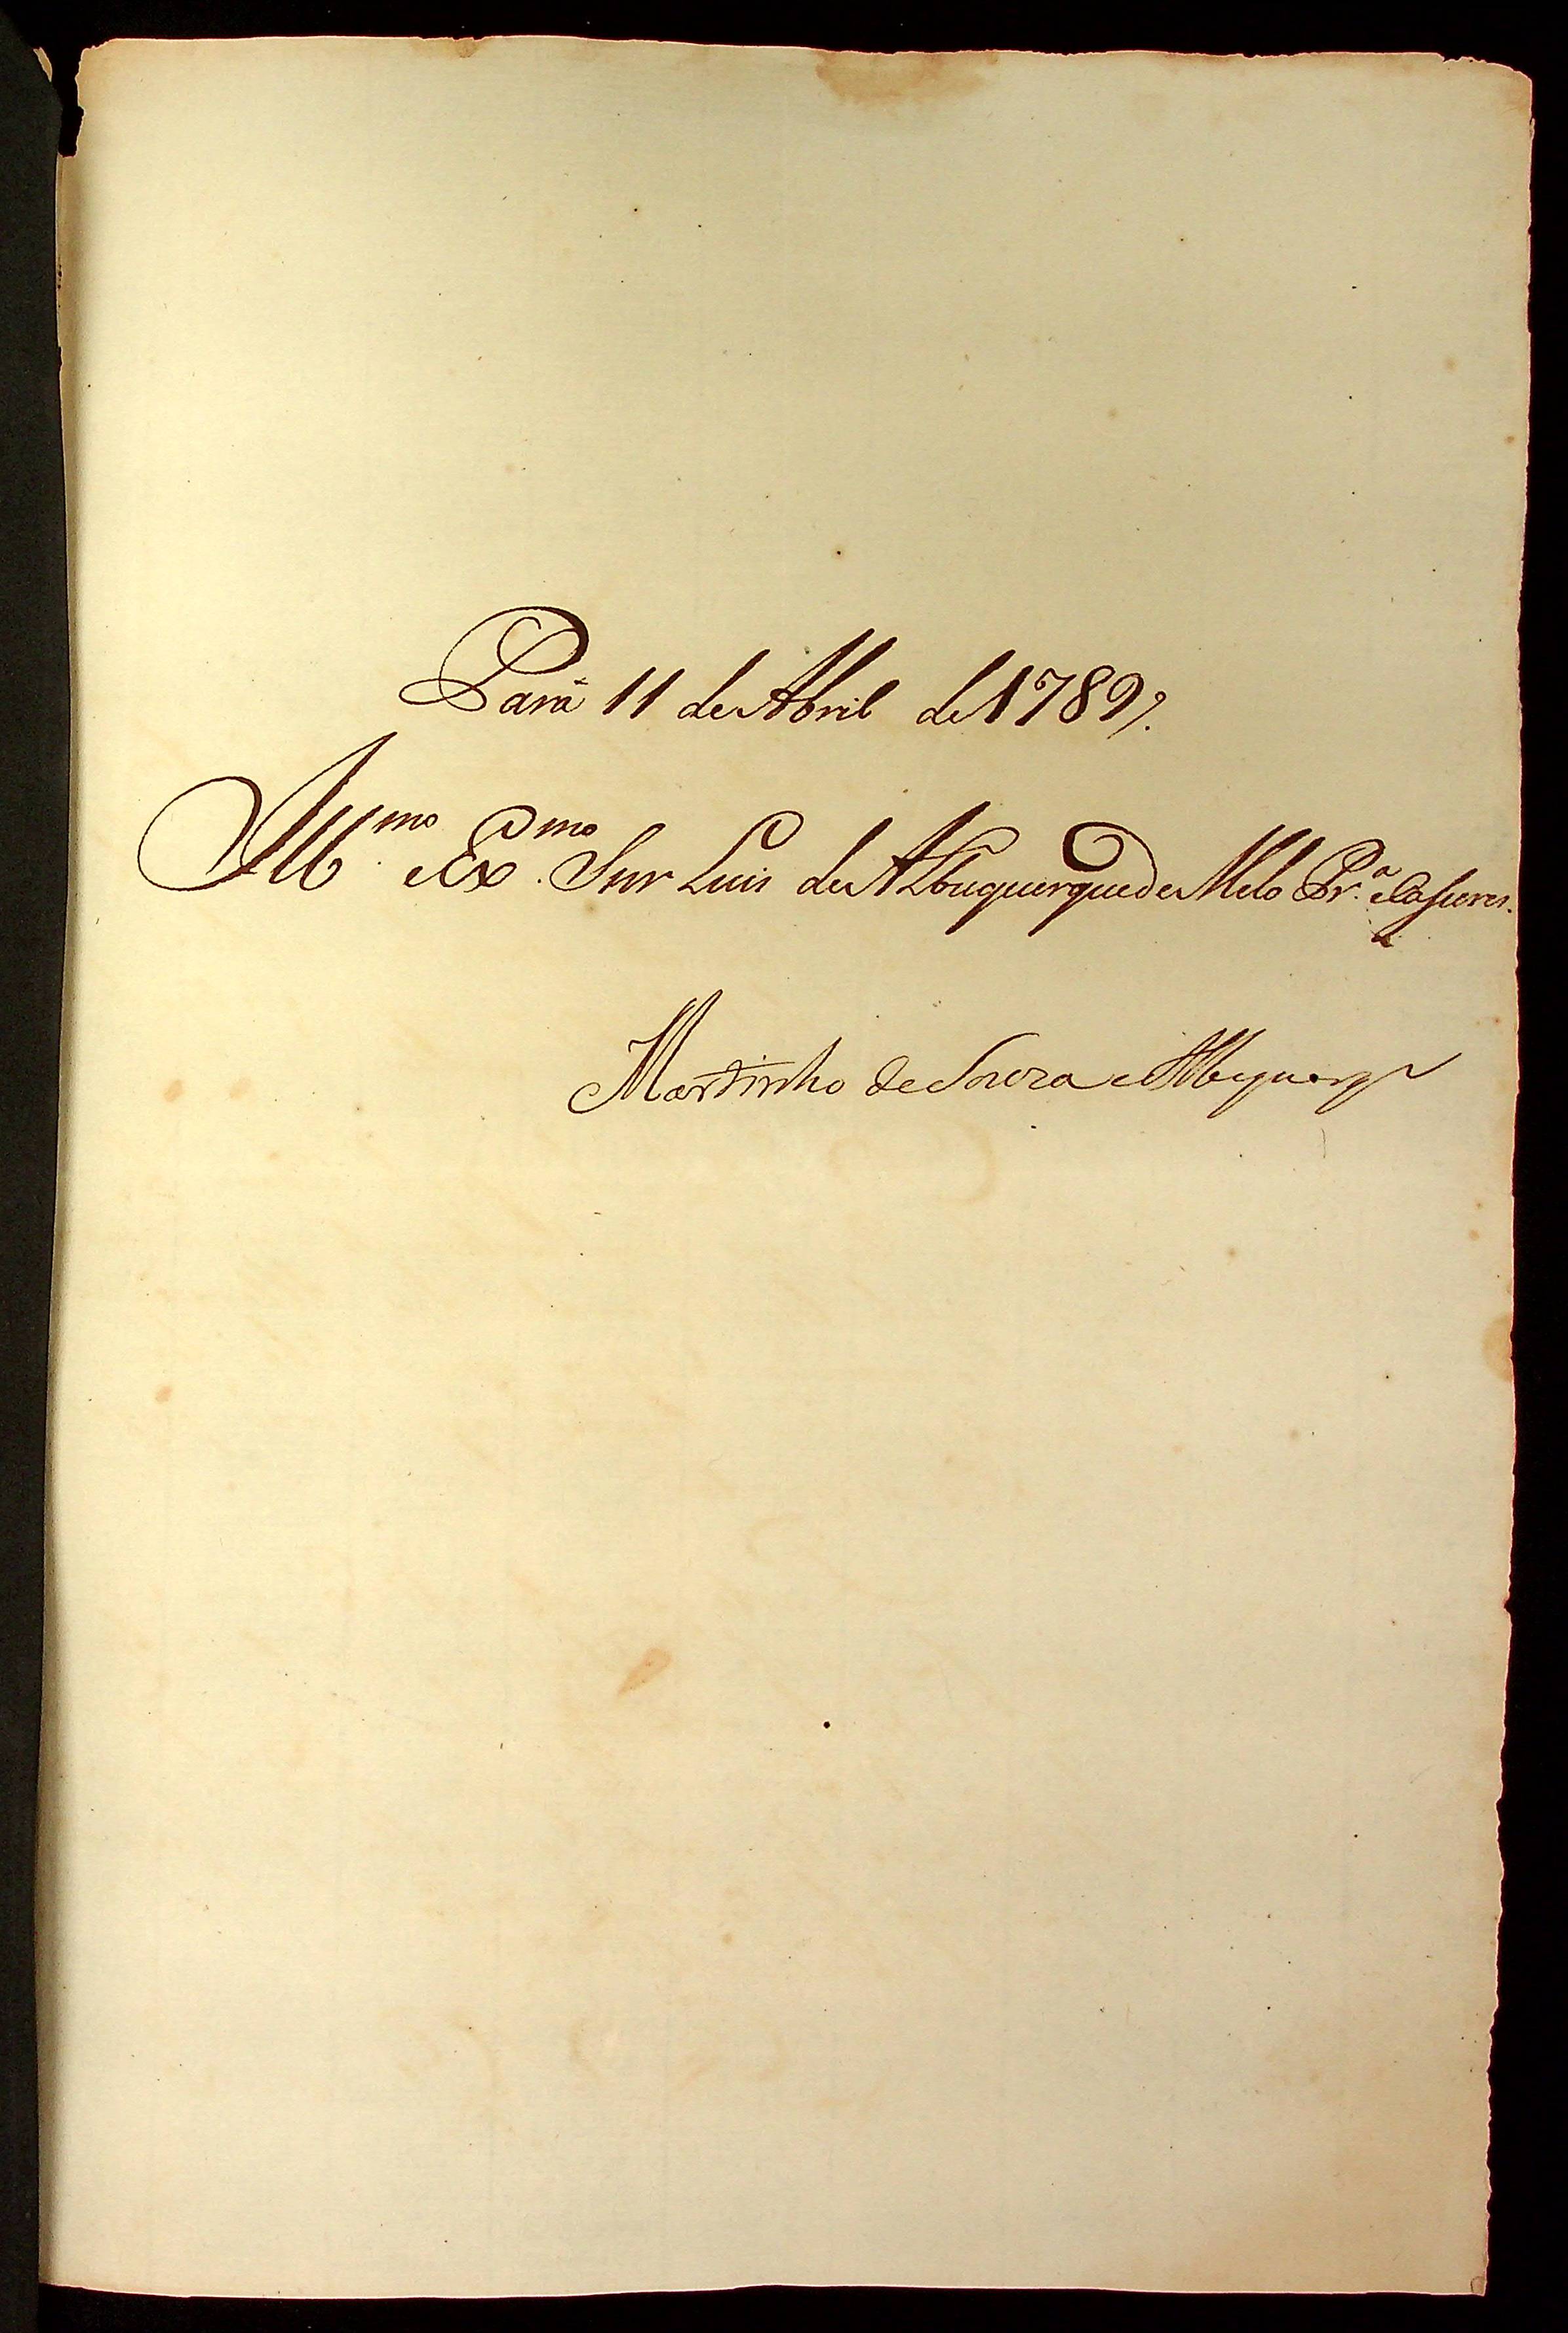 Pará 11 de Abril de 1789.
Ill.mo e Ex.mo Snr Luis de Albuquerque de Melo Pr.a e Casseres.
Martinho de Souza e Albuquerq